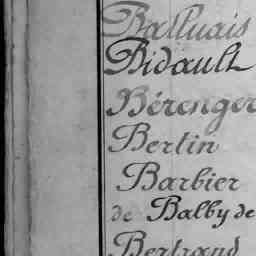 Balluais
Bidault
Bérenger
Bertin
Barbier
de Balby de
Bertrand